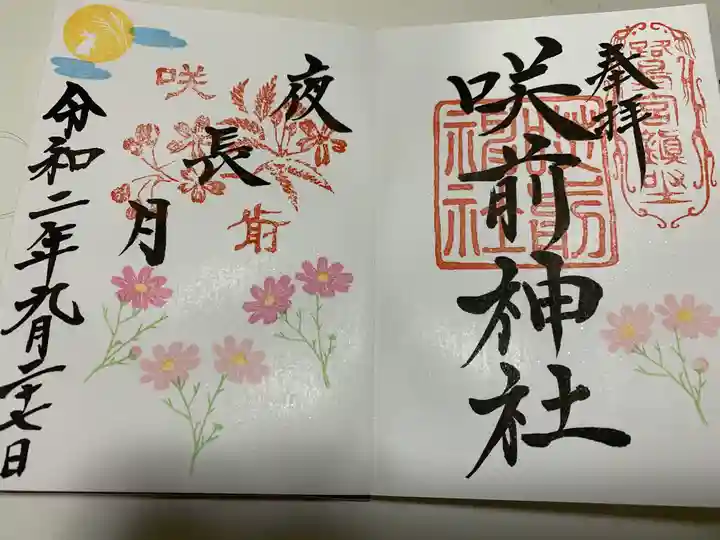 奉拝
鷺宮鎮坐
咲前神社
咲前神社
夜長月
咲前
令和二年九月二十七日